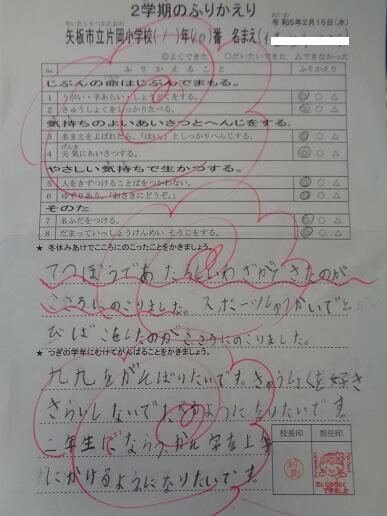 2学期のふりかえり
令和5年2月15日(水)
矢板市立片岡小学校(1)年(10)番 名まえ(
◎よくできた ○だいたいできた △できなかった
№ ふりかえること ふりかえり
じぶんの命はじぶんでまもる。
1 うがい・手あらい・しょうどくをする。 ◎ ○ △
2 きゅうしょくをしっかりたべる。 ◎ ○ △
気持ちのよいあいさつとへんじをする。
3 名まえをよばれたら、「はい」としっかりへんじする。 ◎ ○ △
4 元気にあいさつする。 ◎ ○ △
やさしい気持ちで生かつする。
5 人をきずつけることばをつかわない。 ◎ ○ △
6 ゆずりあう。「おさきにどうぞ。」 ◎ ○ △
そのた
7 名ふだをつける。 ◎ ○ △
8 だまっていっしょうけんめい そうじをする。 ◎ ○ △
★ 冬休みあけでこころにのこったことをかきましょう。
てつぼうであたらしいわざができたのが
こころにのこりました。スポーツしゅうかいでと
びばこをしたのがこころにのこりました。
★つぎの学年にむけてがんばることをかきましょう。
九九をがんばりたいです。きゅうしょくを好き
きらいしないでたべるようになりたいです。
二年生でならうかん字を上手
にかけるようになりたいです。
校長印 担任印